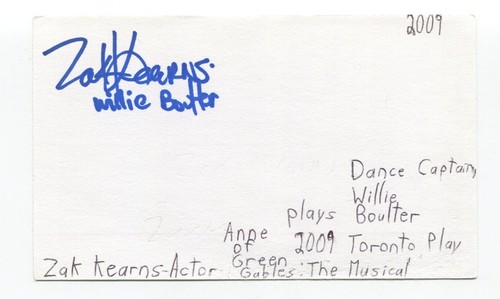 2009
Zak Kearns.
Willie Boulter
Dance Captain,
Willie
plays Boulter
Anne 2009 Toronto Play
of
Green
Zak Kearns-Actor Gables: The Musical